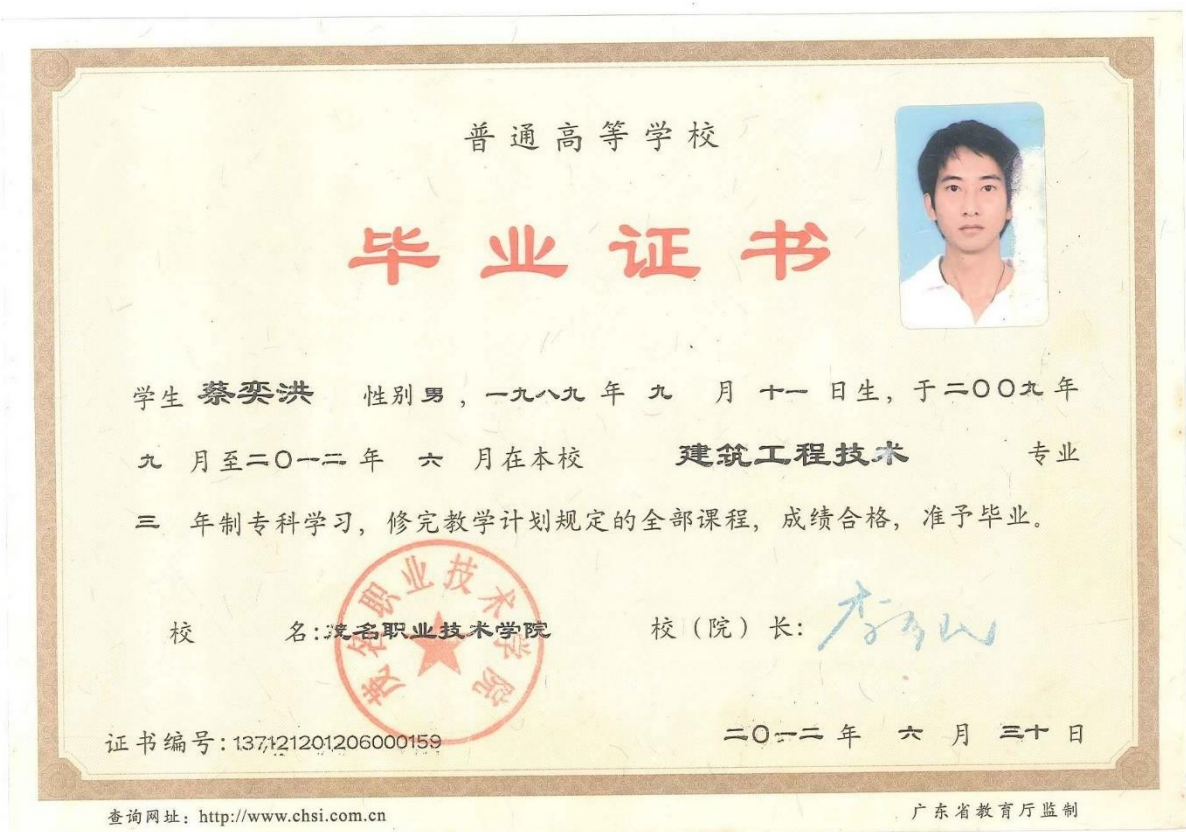 普通高等学校
毕业证书
学生 蔡奕洪 性别 男 ，一九八九 年 九 月 十一 日生，于二〇〇九 年
九 月至二〇一二 年 六 月在本校 建筑工程技术 专业
三 年制专科学习，修完教学计划规定的全部课程，成绩合格，准予毕业。
茂名职业技术学院
校 名：茂名职业技术学院 校（院）长：
证书编号：137121201206000159 二〇一二 年 六 月 三十 日
查询网址：http://www.chsi.com.cn 广东省教育厅监制